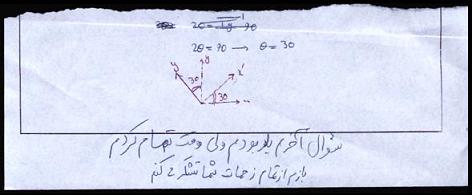 2θ = 90
2θ = 90 → θ = 30
y' y x'
30 30
سوال آخرم بلد بودم ولی وقت تمام کردم
بازم از تمام زحمات شما تشکر می کنم